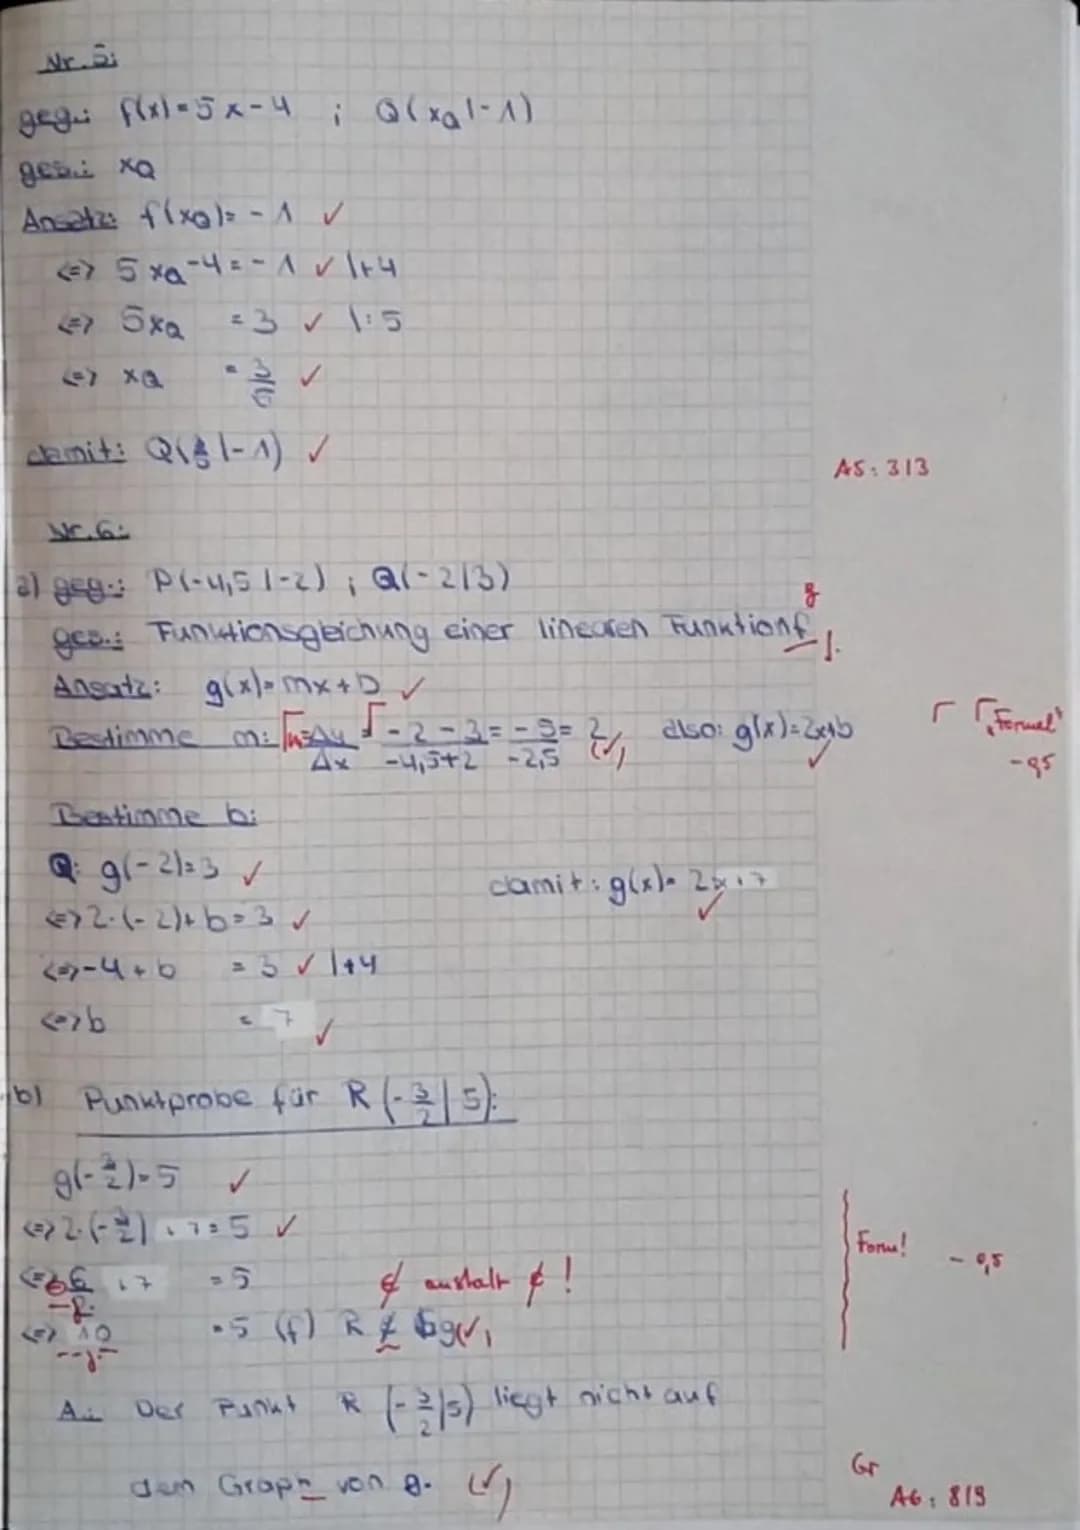 Nr. 5:
geg.: f(x)=5x-4 ; Q(xQ|-1)
ges.: xQ
Ansatz: f(xQ)=-1 ✓
<=> 5xQ-4=-1 ✓ |+4
<=> 5xQ =3 ✓ |:5
<=> xQ = 3/5 ✓
damit: Q(3/5|-1) ✓
A5: 3|3
Nr. 6:
a) geg.: P(-4,5|-2) ; Q(-2|3)
g
ges.: Funktionsgleichung einer linearen Funktion f f.
Ansatz: g(x)=mx+b ✓
Bestimme m: Γm=Δy/Δx Γ -2-3/-4,5+2 = -5/-2,5 = 2 (✓) also: g(x)=2x+b ✓
Γ Γ "Formel"
-0,5
Bestimme b:
Q: g(-2)=3 ✓
damit: g(x)= 2x+7 ✓
<=> 2·(-2)+b=3 ✓
<=> -4+b =3 ✓ |+4
<=> b = 7 ✓
b) Punktprobe für R (-3/2|5):
g(-3/2)=5 ✓
<=> 2·(-3/2)+7=5 ✓
Form! -0,5
<=> 6 +7 =5 ∉ anstatt ¢!
<=> 10 =5 (f) R ∉ g (✓)
A.: Der Punkt R (-3/2|5) liegt nicht auf
dem Graph von g. (✓)
Gr
A6: 8|9